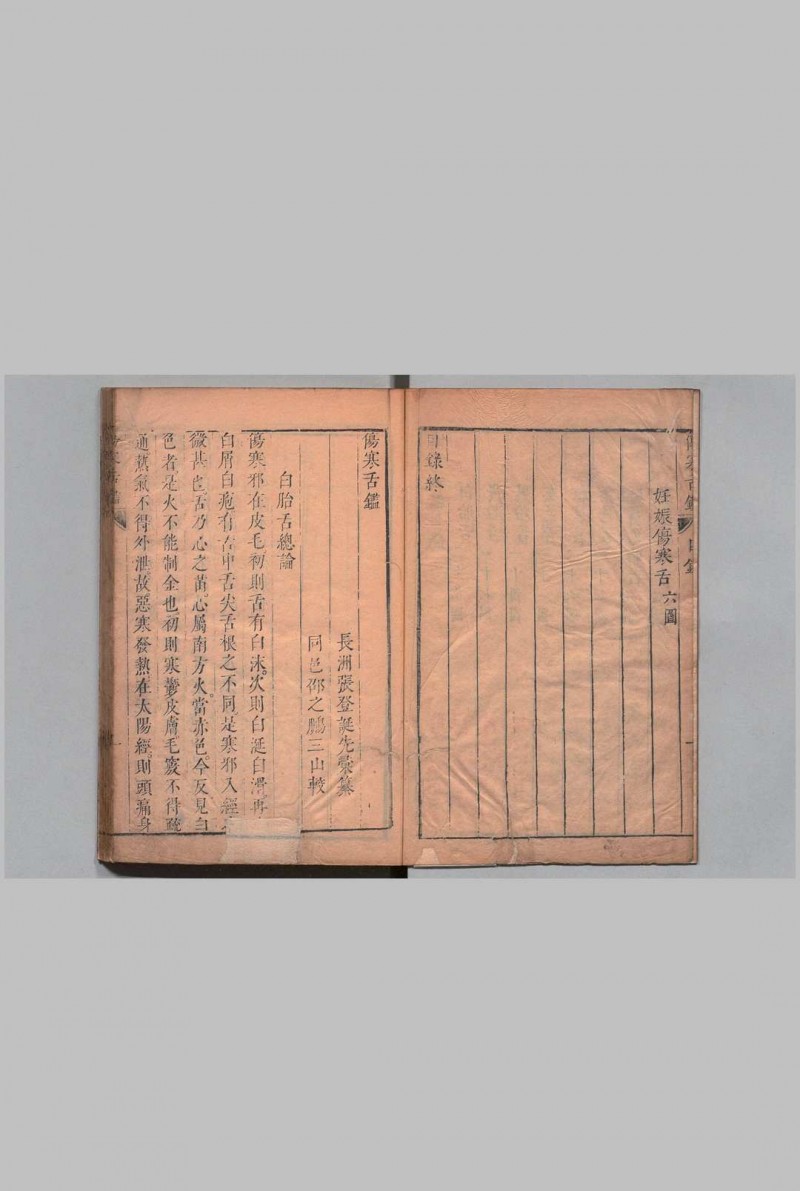 妊娠傷寒舌 六圖
目錄終
傷寒舌鑑
長洲張登誕先彙纂
同邑邵之鵬三山較
白胎舌總論
傷寒邪在皮毛初則舌有白沫次則白涎白滑再
白屑白疱有舌中舌尖舌根之不同是寒邪入經
微甚也舌乃心之苗心屬南方火當赤色今反見白
色者是火不能制金也初則寒鬱皮膚毛竅不得疏
通熱氣不得外泄故惡寒發熱在太陽經則頭痛身